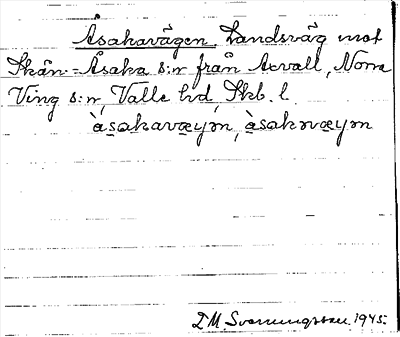 Åsakavägen. Landsväg mot
Skån-Åsaka s:n från Axvall, Norra
Ving s:n, Valle hd, Skb. l.
àsakavæyǝn, àsaknvæyǝn
I.M. Svanungsson. 1945.